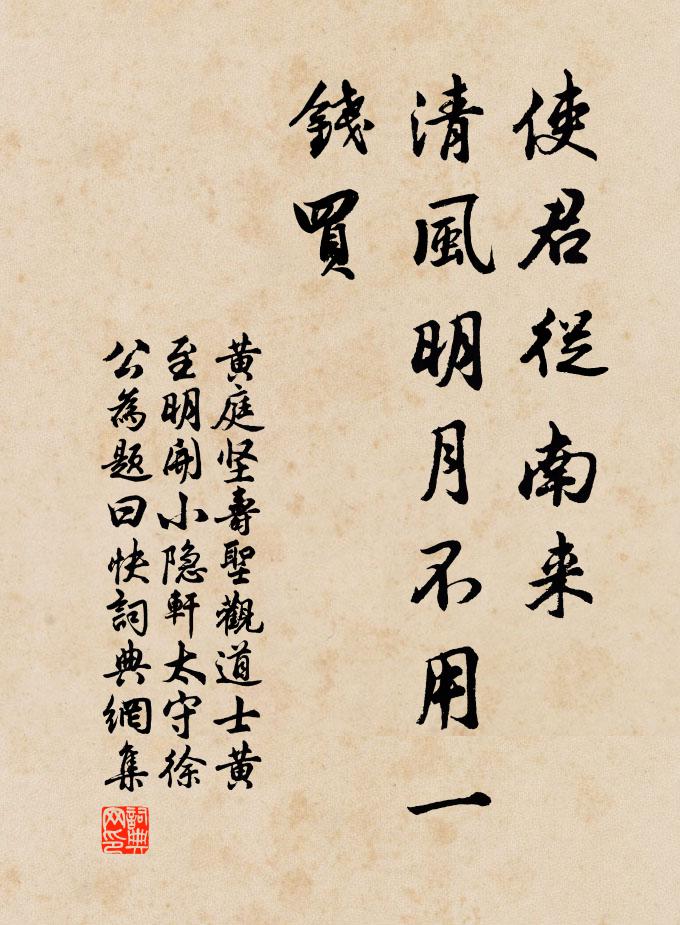 使君從南来
清風明月不用一
錢買
黄庭坚壽聖觀道士黄
至明開小隐軒太守徐
公為题曰快詞典網集
詞典网印